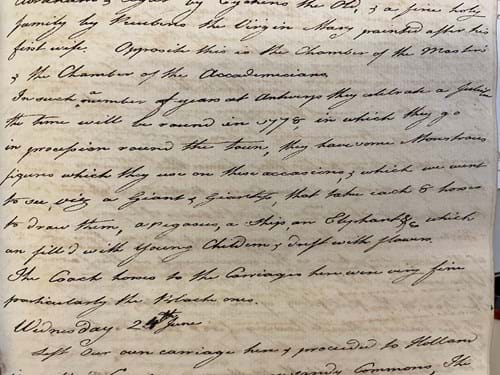 Abraham & Hagar by Eyckens the Old, & a fine holy
family by Reubens the Virgin Mary painted after his
first wife. Opposit this is the Chamber of the Masters
& the Chamber of the Accademicians
In such a number of years at Antwerp they celebrate a Jubilee
the time will be round in 1778, in which they go
in procession round the town, they have some Monstrous
figures which they use on these occasions, & which we went
to see, viz a Giant & Giantess, that take each 8 horses
to draw them, a pegasus, a Ship, an Elephant &c which
are fill'd with young Children & drest with flowers.
The Coach horses to the Carriages here were very fine
particularly the black ones.
Wednesday 24th June
Left Our own carriage here & proceeded to Holland
Commons, The